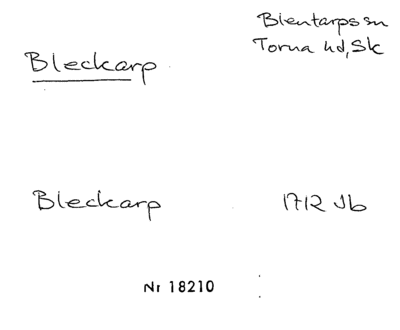 Blentarps sn
Torna hd, Sk
Bleckarp
Bleckarp 1712 Jb
Nr 18210